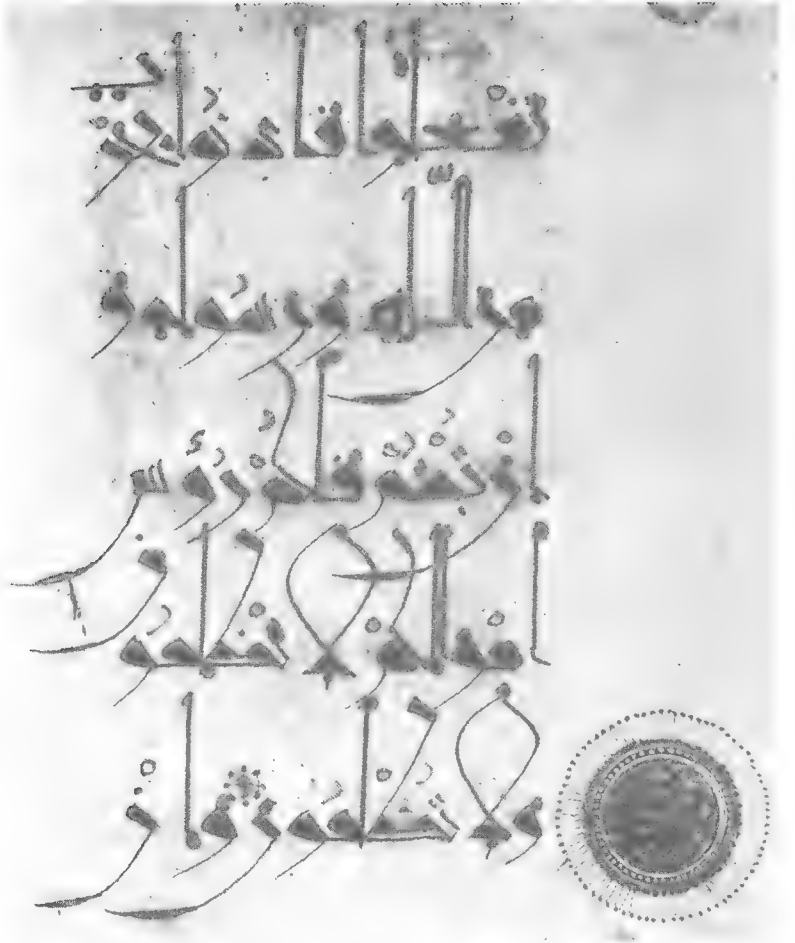 تفعلوا فاذنوا بحرب
من الله ورسوله و
ان تبتم فلكم رؤس
اموالكم لا تظلمون
ولا تظلمون وان